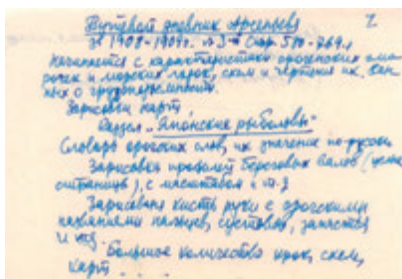 Путевой дневник Арсеньева 2
за 1908-1909г. №3 Стр. 570-769.
Начинается с характеристики орочских
и морских лодок, схем и чертежи их.
ных о
Зарисовки карт,
Раздел „Японские рыболовы"
Словарь орочских слов, их значение по-русски
Зарисовки профилей береговых валов (целые
страницы), с масштабом и т.д
Зарисована кисть руки с орочскими
названиями пальцев, суставов, запястья
и т.д. Большое количество крок, схем,
карт